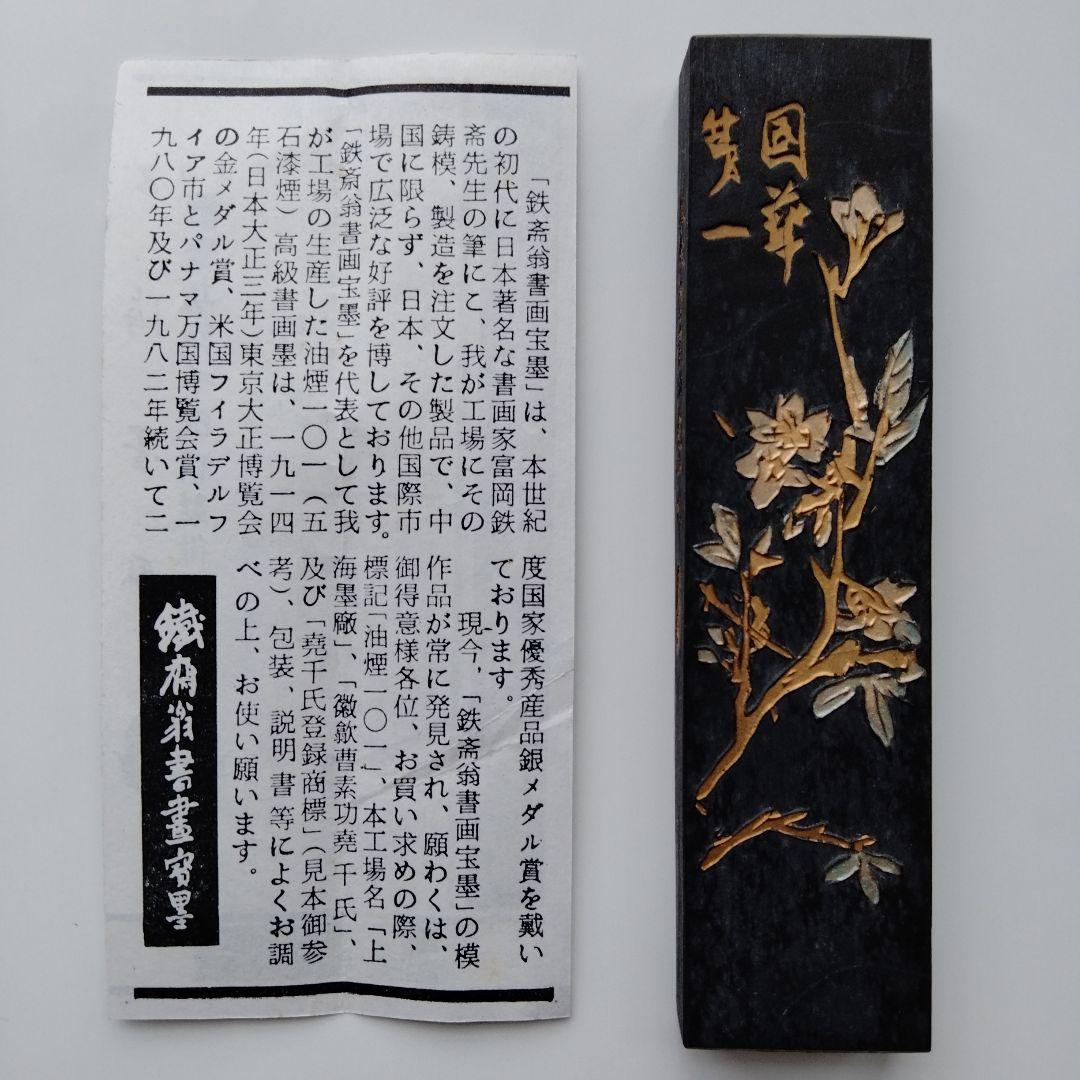 「鉄斎翁書画宝墨」は、本世紀
の初代に日本著名な書画家富岡鉄
斎先生の筆にこ、我が工場にその
鋳模、製造を注文した製品で、中
国に限らず、日本、その他国際市
場で広泛な好評を博しております。
「鉄斎翁書画宝墨」を代表として我
が工場の生産した油煙一〇一(五
石漆煙)高級書画墨は、一九一四
年(日本大正三年)東京大正博覧会
の金メダル賞、米国フイラデルフ
ィア市とパナマ万国博覧会賞、一
九八〇年及び一九八二年続いて二
度国家優秀産品銀メダル賞を戴い
ております。
現今,「鉄斎翁書画宝墨」の模
作品が常に発見され、願わくは、
御得意様各位、お買い求めの際、
標記「油煙一〇一」、本工場名「上
海墨廠」、「徽歙曹素功堯千氏」、
及び「堯千氏登録商標」(見本御参
考)、包装、説明書等によくお調
べの上、お使い願います。
鐵齋翁書畫寳墨
國華
第一